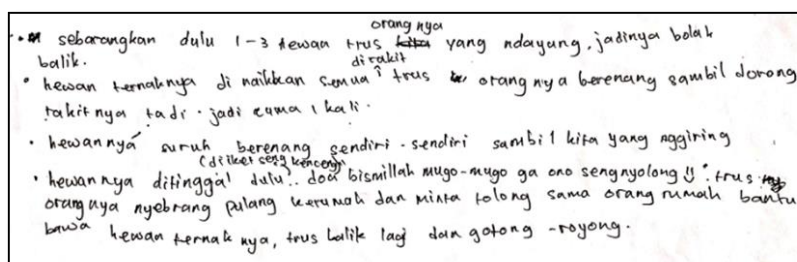 orang nya
• sebarangkan dulu 1-3 hewan trus kita yang ndayung, jadinya bolak
balik.
dirakit
• hewan ternaknya di naikkan semua trus orang nya berenang sambil dorong
rakit nya tadi. jadi cuma 1 kali.
• hewannya suruh berenang sendiri-sendiri sambil kita yang nggiring
(diiket seng kenceng)
• hewan nya ditinggal dulu!. doa bismillah mugo-mugo ga ono seng nyolong!! trus
orang nya nyebrang pulang kerumah dan minta tolong sama orang rumah bantu
bawa hewan ternak nya, trus balik lagi dan gotong-royong.